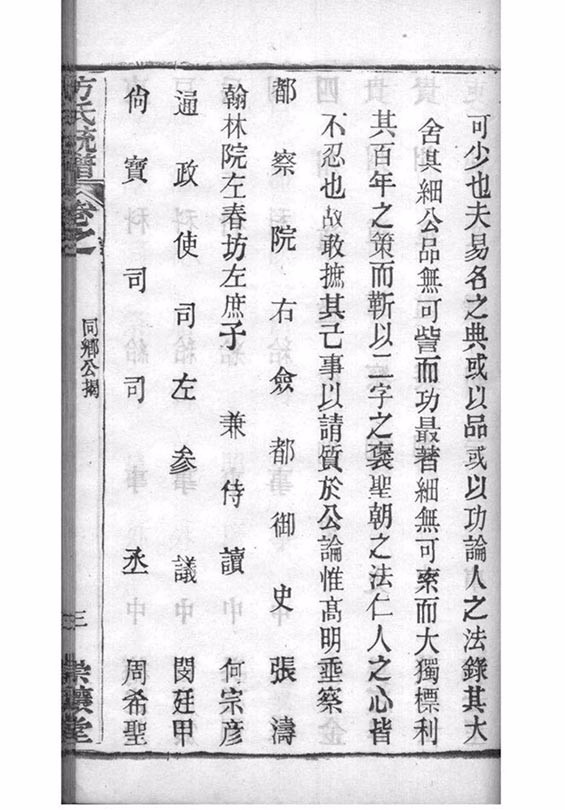 可少也夫易名之典或以品或以功論人之法錄其大
舍其細公品無可訾而功最著細無可索而大獨標利
其百年之策而靳以二字之褒聖朝之法仁人之心皆
不忍也故敢摭其已事以請質於公論惟髙明垂察
都察院右僉都御史張濤
翰林院左春坊左庶子兼侍讀何宗彦
通政使司左參議閔廷甲
尙寶司司丞周希聖
方氏統譜
卷之
同鄉公揭
三
堂